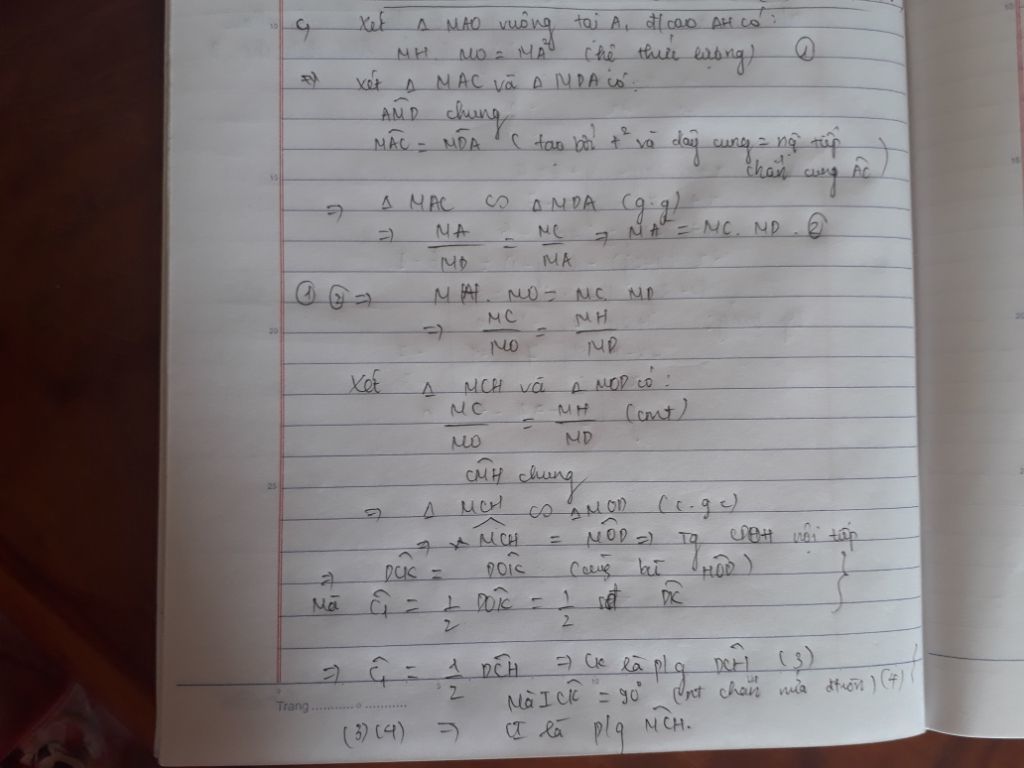 c, Xét Δ MAO vuông tại A, đ/cao AH có:
MH. MO = MA² (hệ thức lượng) ①
⇒ Xét Δ MAC và Δ MDA có:
AM̂D chung
MÂC = MD̂A (tạo bởi t² và dây cung = nội tiếp
chắn cung AC)
⇒ Δ MAC ∽ Δ MDA (g.g)
⇒ MA/MD = MC/MA ⇒ MA² = MC. MD. ②
① ② ⇒ MH. MO = MC. MD
⇒ MC/MO = MH/MD
Xét Δ MCH và Δ MOD có:
MC/MO = MH/MD (cmt)
CM̂H chung
⇒ Δ MCH ∽ Δ MOD (c.g.c)
⇒ MĈH = MÔD ⇒ Tg CDOH nội tiếp
⇒ = DÔK (cùng bù HÔD)
Mà Ĉ₁ = 1/2 DÔK = 1/2 sđ DK
⇒ Ĉ₁ = 1/2 DĈH ⇒ CK là p/g DĈH (3)
Mà IĈK = 90° (nt chắn nửa đtròn) (4)
Trang
(3) (4) ⇒ CI là p/g MĈH.